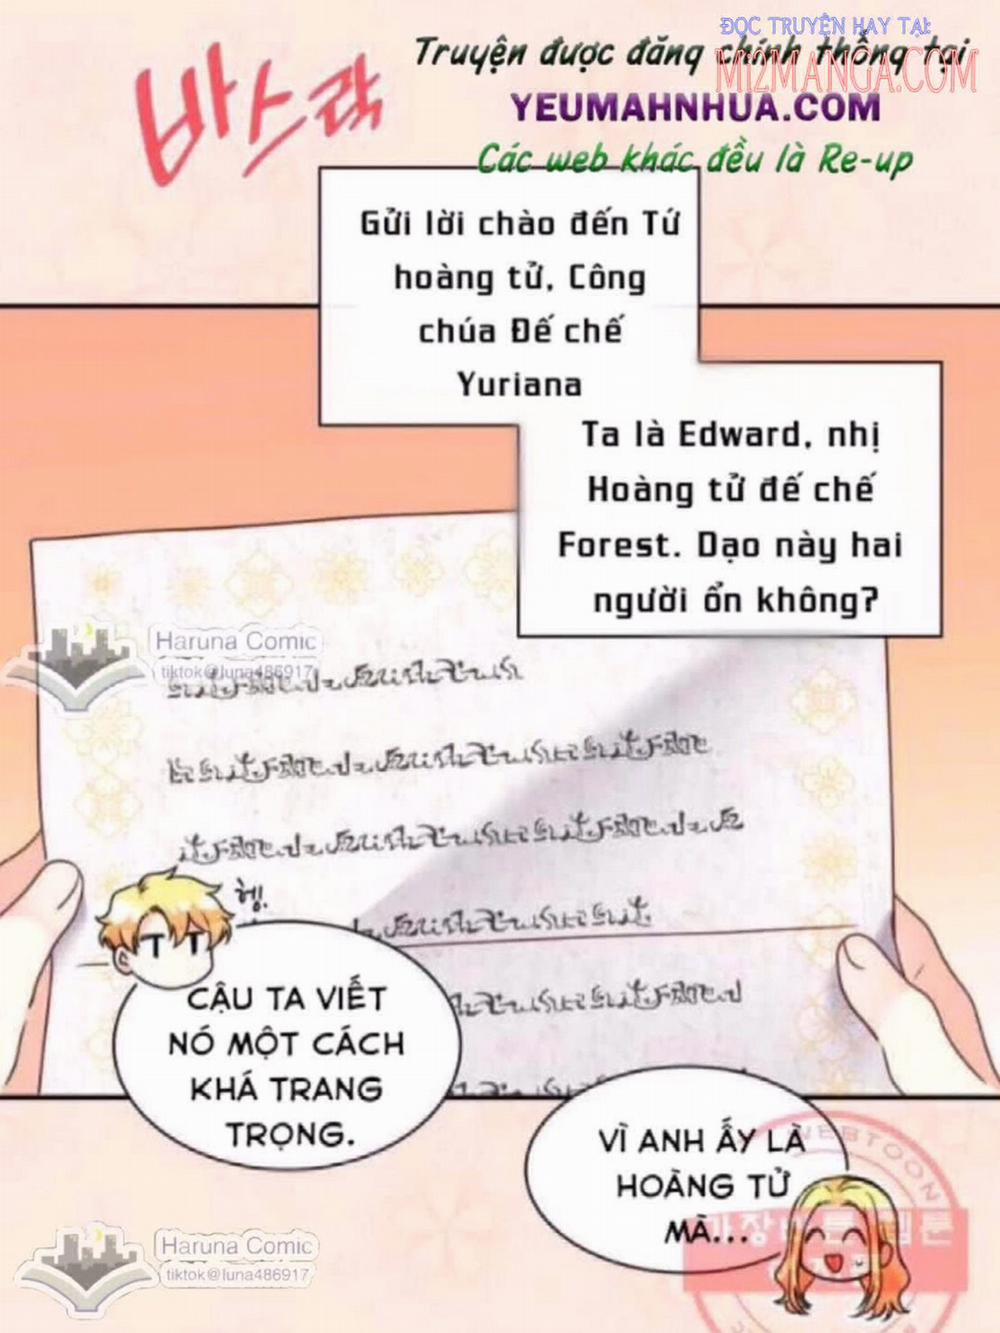 ĐỌC TRUYỆN HAY TẠI:
MI2MANGA.COM
Truyện được đăng chính thống tại
YEUMAHNHUA.COM
Các web khác đều là Re-up
바스락
Gửi lời chào đến Tứ
hoàng tử, Công
chúa Đế chế
Yuriana
Ta là Edward, nhị
Hoàng tử đế chế
Forest. Dạo này hai
người ổn không?
Haruna Comic
tiktok@luna486917
헹!
CẬU TA VIẾT
NÓ MỘT CÁCH
KHÁ TRANG
TRỌNG.
VÌ ANH ẤY LÀ
HOÀNG TỬ
MÀ...
WEBTOON
Haruna Comic
tiktok@luna486917